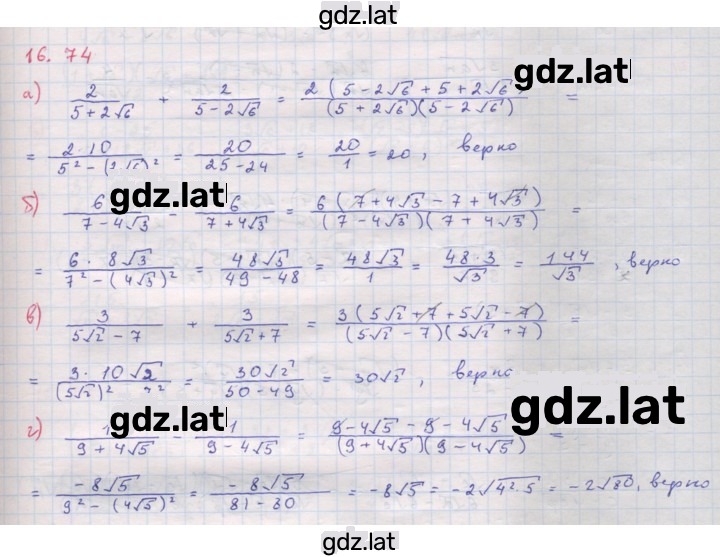 gdz.lat
16. 74
gdz.lat
а) 2/(5+2√6) + 2/(5-2√6) = 2(5-2√6+5+2√6)/((5+2√6)(5-2√6)) =
= 2·10/(5²-(2√6)²) = 20/(25-24) = 20/1 = 20, верно
gdz.lat
б) 6/(7-4√3) - 6/(7+4√3) = 6(7+4√3-7+4√3)/((7-4√3)(7+4√3)) =
gdz.lat
= 6·8√3/(7²-(4√3)²) = 48√3/(49-48) = 48√3/1 = 48·3/√3 = 144/√3, верно
в) 3/(5√2-7) + 3/(5√2+7) = 3(5√2+7+5√2-7)/((5√2-7)(5√2+7)) =
= 3·10√2/((5√2)² 7²) = 30√2/(50-49) = 30√2, верно
gdz.lat
gdz.lat
г) 1/(9+4√5) - 1/(9-4√5) = (9-4√5-9-4√5)/((9+4√5)(9-4√5)) =
= -8√5/(9²-(4√5)²) = -8√5/(81-80) = -8√5 = -2√(4²·5) = -2√80, верно
gdz.lat